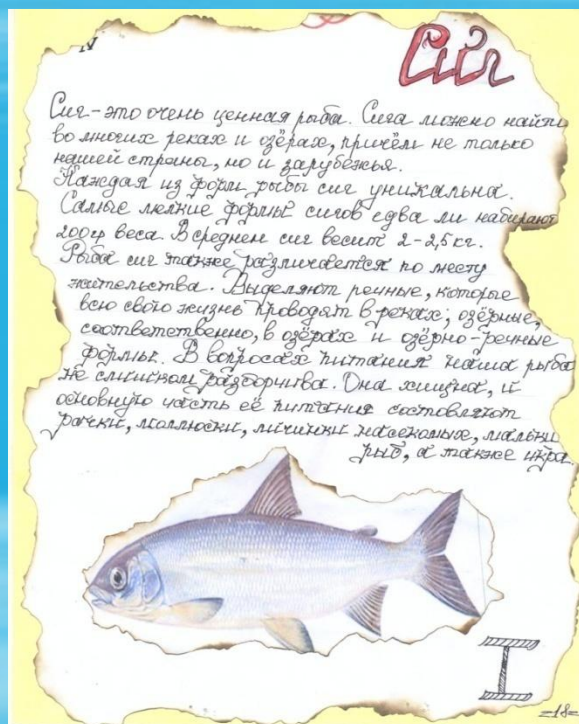 Сиг
Сиг-это очень ценная рыба. Сига можно найти
во многих реках и озёрах, причём не только
нашей страны, но и зарубежья.
Каждая из форм рыбы сиг уникальна.
Самые мелкие формы сигов едва ли набирают
200гр веса. В среднем сиг весит 2-2,5 кг.
Рыба сиг также различается по месту
жительства. Выделяют речные, которые
всю свою жизнь проводят в реках; озёрные,
соответственно, в озёрах и озёрно-речные
формы. В вопросах питания наша рыба
не слишком разборчива. Она хищна, и
основную часть её питания составляют
рачки, моллюски, личинки насекомых, мальки
рыб, а также икра.
I
=18=